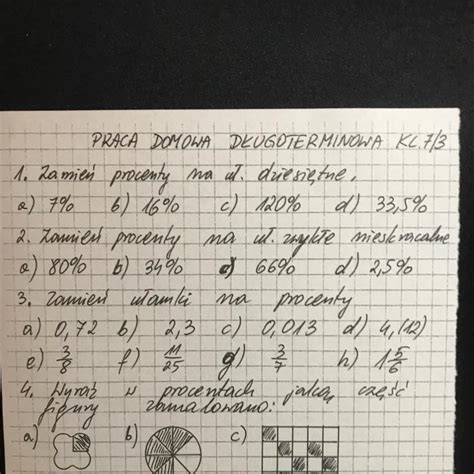 PRACA DOMOWA DŁUGOTERMINOWA KL.7/3
1. Zamień procenty na uł. dziesiętne.
a) 7% b) 16% c) 120% d) 33,5%
2. Zamień procenty na uł. zwykłe nieskracalne
a) 80% b) 34% c) 66% d) 2,5%
3. Zamień ułamki na procenty
a) 0,72 b) 2,3 c) 0,013 d) 4,(12)
e) 3/8 f) 11/25 g) 3/7 h) 1 5/6
4. Wyraź w procentach jaką część
figury zamalowano:
a) b) c)